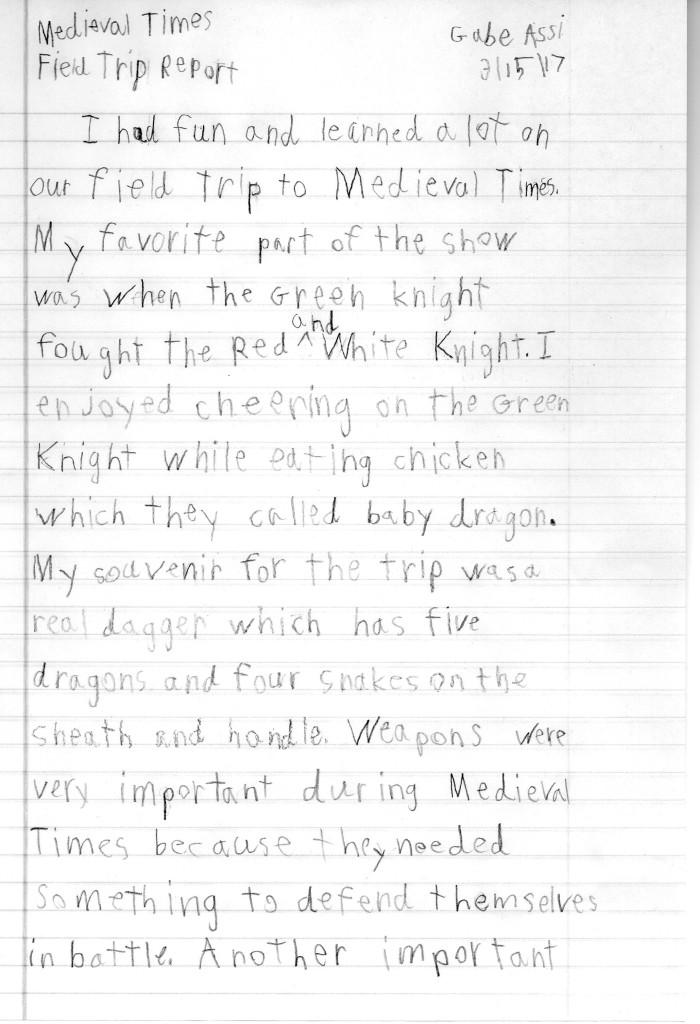 Medieval Times Gabe Assi
Field Trip Report 3/15/17
I had fun and learned a lot on
our field trip to Medieval Times.
My favorite part of the show
was when the Green knight
fought the Red and White Knight. I
enjoyed cheering on the Green
Knight while eating chicken
which they called baby dragon.
My souvenir for the trip was a
real dagger which has five
dragons and four snakes on the
sheath and handle. Weapons were
very important during Medieval
Times because they needed
something to defend themselves
in battle. Another important